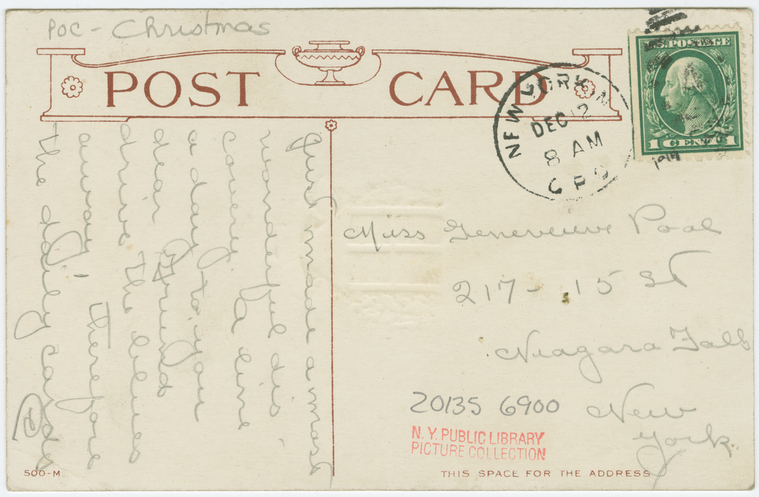 POC - Christmas
POST CARD
NEW YORK, N.Y.
DEC 12
8 AM
G.P.O.
U.S. POSTAGE
1 CENT 1
Just made a most
wonderful dis
covery. A line
a day to you
dear friend
drives the blues
away! Therefore
the daily cards
Miss Genevieve Pool
217 - 15 St
Niagara Falls
New
York.
20135 6900
N. Y. PUBLIC LIBRARY
PICTURE COLLECTION
500-M
THIS SPACE FOR THE ADDRESS